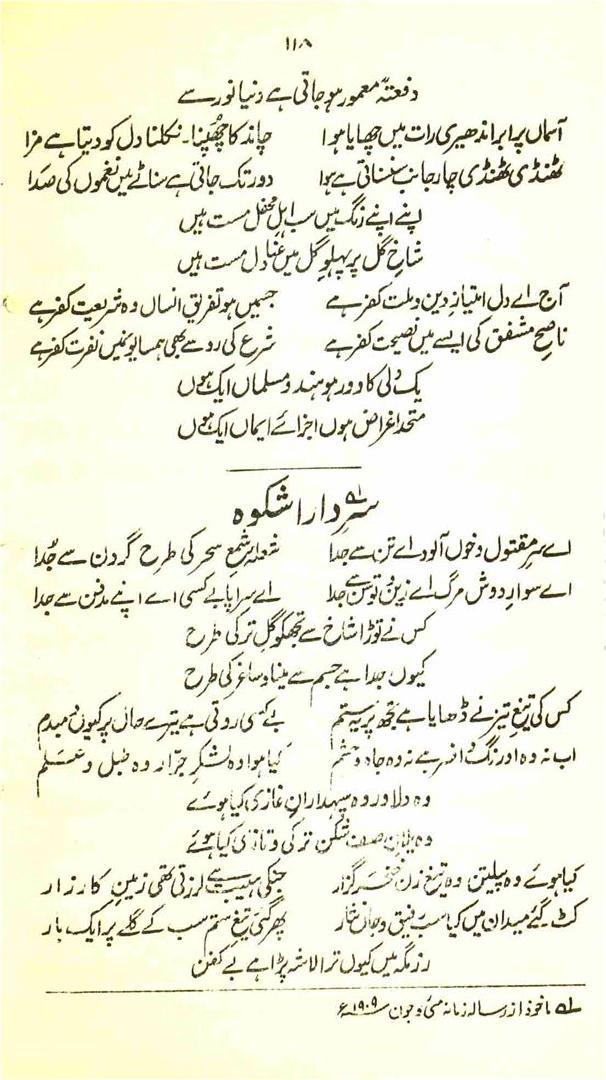 ۱۱۸
دفعتہً معمور ہو جاتی ہے دنیا نور سے
آسماں پر ابر اندھیری رات میں چھایا ہوا چاند کا چھپنا۔ نکلنا دل کو دیتا ہے مزا
ٹھنڈی ٹھنڈی چار جانب سنسناتی ہے ہوا دور تک جاتی ہے سناٹے میں نغموں کی صدا
اپنے اپنے رنگ میں سب اہل محفل مست ہیں
شاخِ گل پر پہلوِ گل میں عنادل مست ہیں
آج اے دل امتیازِ دین و ملت کفر ہے جسمیں ہو تفریقِ انساں وہ شریعت کفر ہے
ناصحِ مشفق کی ایسے میں نصیحت کفر ہے شرع کی رو سے بھی ہمسایوں میں نفرت کفر ہے
یک دلی کا دور ہو ہندو مسلماں ایک ہوں
متحد اغراض ہوں اجزائے ایماں ایک ہوں
سرِ دارا شکوہ لہ
اے سرِ مقتول و خوں آلود اے تن سے جدا شعلۂ شمعِ سحر کی طرح گردن سے جُدا
اے سوارِ دوش مرگ اے زین و توسن سے جدا اے سراپا بے کسی اے اپنے مدفن سے جدا
کس نے توڑا شاخ سے تجھ کو گلِ تر کی طرح
کیوں جدا ہے جسم سے مینا و ساغر کی طرح
کس کی تیغِ تیز نے ڈھایا ہے تجھ پر یہ ستم بے کسی روتی ہے تیرے حال پر کیوں دمبدم
اب نہ وہ اورنگ و افسر ہے نہ وہ جاہ و حشم کیا ہوا وہ لشکرِ جرّار وہ طبل و علم
وہ دلاور وہ سپہدارانِ غازی کیا ہوئے
وہ یلانِ صف شکن ترکی و تازی کیا ہوئے
کیا ہوئے وہ پیلتن وہ تیغ زن خنجر گزار جنکی ہیبت سے لرزتی تھی زمینِ کارزار
کٹ گئے میدان میں کیا سب رفیق و جاں نثار پھر گئی تیغِ ستم سب کے گلے پر ایک بار
رزمگہ میں کیوں ترا لاشہ پڑا ہے بے کفن
لہ ماخوذ از رسالہ زمانہ مئی و جون ۱۹۰۹ء